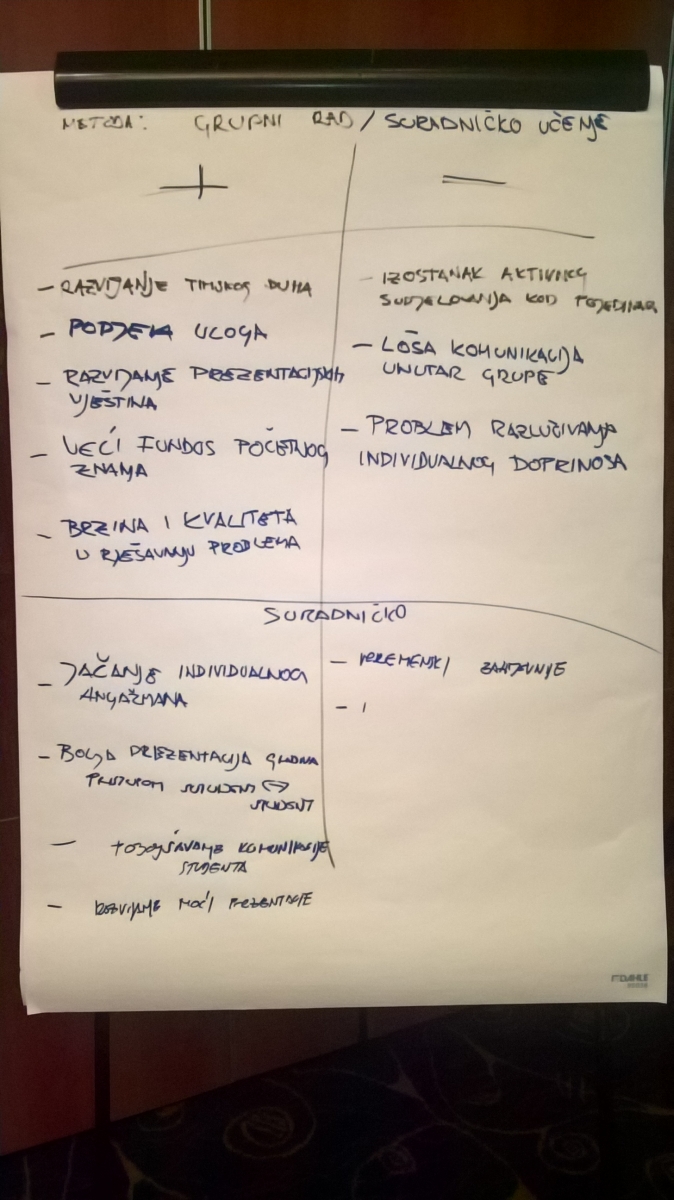 METODA: GRUPNI RAD / SURADNIČKO UČENJE
+
−
- RAZVIJANJE TIMSKOG DUHA
- PODJELA ULOGA
- RAZVIJANJE PREZENTACIJSKIH
VJEŠTINA
- VEĆI FUNDUS POČETNOG
ZNANJA
- BRZINA I KVALITETA
U RJEŠAVANJU PROBLEMA
- IZOSTANAK AKTIVNOG
SUDJELOVANJA KOD POJEDINACA
- LOŠA KOMUNIKACIJA
UNUTAR GRUPE
- PROBLEM RAZLUČIVANJA
INDIVIDUALNOG DOPRINOSA
SURADNIČKO
- JAČANJE INDIVIDUALNOG
ANGAŽMANA
- BOLJA PREZENTACIJA GRADIVA
PRISTUPOM STUDENT ↔
STUDENT
- POBOLJŠAVANJE KOMUNIKACIJE
STUDENTA
- RAZVIJANJE MOĆI PREZENTACIJE
- VREMENSKI ZAHTJEVNIJE
-
DAHLE